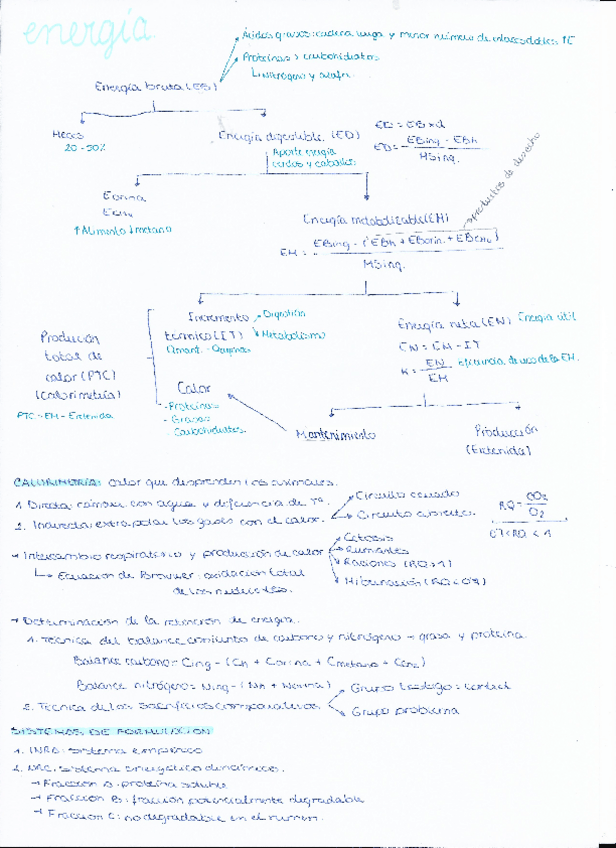 energía.
Ácidos grasos: cadena larga y menor número de enlaces dobles ↑E
Proteínas > carbohidratos
↳ nitrógeno y azufre.
Energía bruta (EB)
Heces
20-50%
Energía digestible (ED)
Aporte energía
cerdos y caballos
ED = EB × d
ED = EBing - EBh
MSing.
Eorina
↑ Alimento ↓ metano
Energía metabolizable (EM)
productos de desecho
EM = EBing - (EBh + EBorin. + EBCH4)
MSing.
Producción
total de
calor (PTC)
(calorimetría)
PTC = EM - Eretenida
Incremento
térmico (IT)
Digestión
Metabolismo
Calor
- Proteínas
- Grasas
- Carbohidratos
Energía neta (EN) Energía útil
EN = EM - IT
K = EN
EM
Eficiencia de uso de la EM.
Mantenimiento
Producción
(Eretenida)
CALORIMETRÍA: calor que desprenden los animales.
1. Directa: cámara con agua y diferencia de Tª.
2. Indirecta: extrapolar los gases con el calor.
Circuito cerrado
Circuito abierto
RQ = CO2
O2
0'7 < RQ < 1
→ Intercambio respiratorio y producción de calor
Cetosis
Rumiantes
Raciones (RQ > 1)
Hibernación (RQ < 0'7)
↳ Ecuación de Brouwer: oxidación total
de los nutrientes.
→ Determinación de la retención de energía.
1. Técnica del balance conjunto de carbono y nitrógeno → grasa y proteína.
Balance carbono = Cing - (Ch + Corina + Cmetano + CCO2)
Balance nitrógeno = Ning - (Nh + Norina)
2. Técnica de los sacrificios comparativos
Grupo testigo = control
Grupo problema
SISTEMAS DE FORMULACIÓN
1. INRA: sistema empírico
2. NRC: sistema energético dinámico.
→ Fracción A: proteína soluble
→ Fracción B: fracción potencialmente degradable
→ Fracción C: no degradable en el rumen.